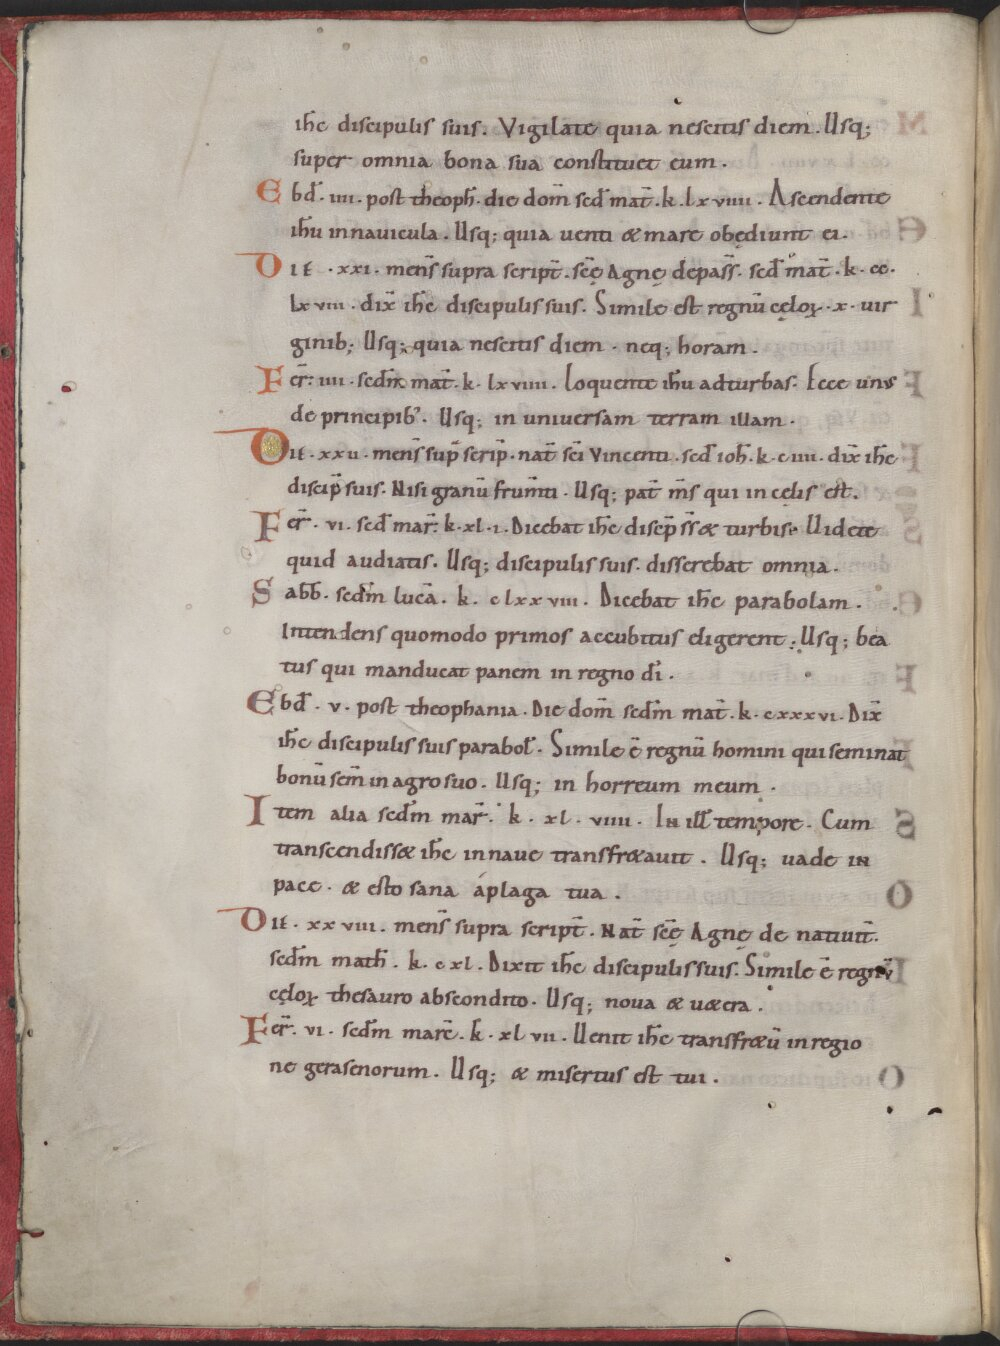 ih̄c discipulis suis. Vigilate quia nescitis diem. Usq;
super omnia bona sua constituet eum.
Ebd̄. iiii. post theoph̄. die dom̄ scd̄ mat̄. k. lxviiii. Ascendente
ih̄u in navicula. Usq; quia venti & mare obędiunt ei.
Die. xxi. mens̄ supra script̄. sc̄ę Agnę de pass̄. scd̄ mat̄. k. cc.
lxviii. dix̄ ih̄c discipulis suis. Simile est regnū cęloꝝ. x. vir
ginib; Usq; quia nescitis diem. neq; horam.
Fer̄. iiii. scdm̄ mat̄. k. lxviiii. Loquente ih̄u ad turbas. Ecce unus
de principib'. Usq; in universam terram illam.
Die. xxii. mens̄ sup̄ scrip̄. nat̄ sc̄i Vincenti. scd̄ ioh̄. k. ciiii. dix̄ ih̄c
discip̄ suis. Nisi granū frum̄ti. Usq; pat̄ m̄s qui in cęlis est.
Fer̄. vi. scd̄ mar̄. k. xl. i. Dicebat ih̄c discp̄ s̄s & turbis. Videte
quid audiatis. Usq; discipulis suis. disserebat omnia.
Sabb̄. scdm̄ lucā. k. clxxviii. Dicebat ih̄c parabolam.
Intendens quomodo primos accubitus eligerent. Usq; bea
tus qui manducat panem in regno d̄i.
Ebd̄. v. post theophania. Die dom̄ scdm̄ mat̄. k. cxxxvi. Dix̄
ih̄c discipulis suis parabol̄. Simile ē regnū homini qui seminat
bonū sem̄ in agro suo. Usq; in horreum meum.
Item alia scdm̄ mar̄. k. xl. viiii. In ill̄ tempore. Cum
transcendiss& ih̄c in nave transfr&avit. Usq; vade in
pace. & esto sana a plaga tua.
Die. xxviii. mens̄ supra script̄. Nat̄ sc̄ę Agnę de nativit̄.
scdm̄ math̄. k. cxl. Dixit ih̄c discipulis suis. Simile ē regnū
cęloꝝ thesauro abscondito. Usq; nova & v&era.
Fer̄. vi. scdm̄ marc̄. k. xlvii. Venit ih̄c transfr&ū in regio
ne gerasenorum. Usq; & misertus est tui.